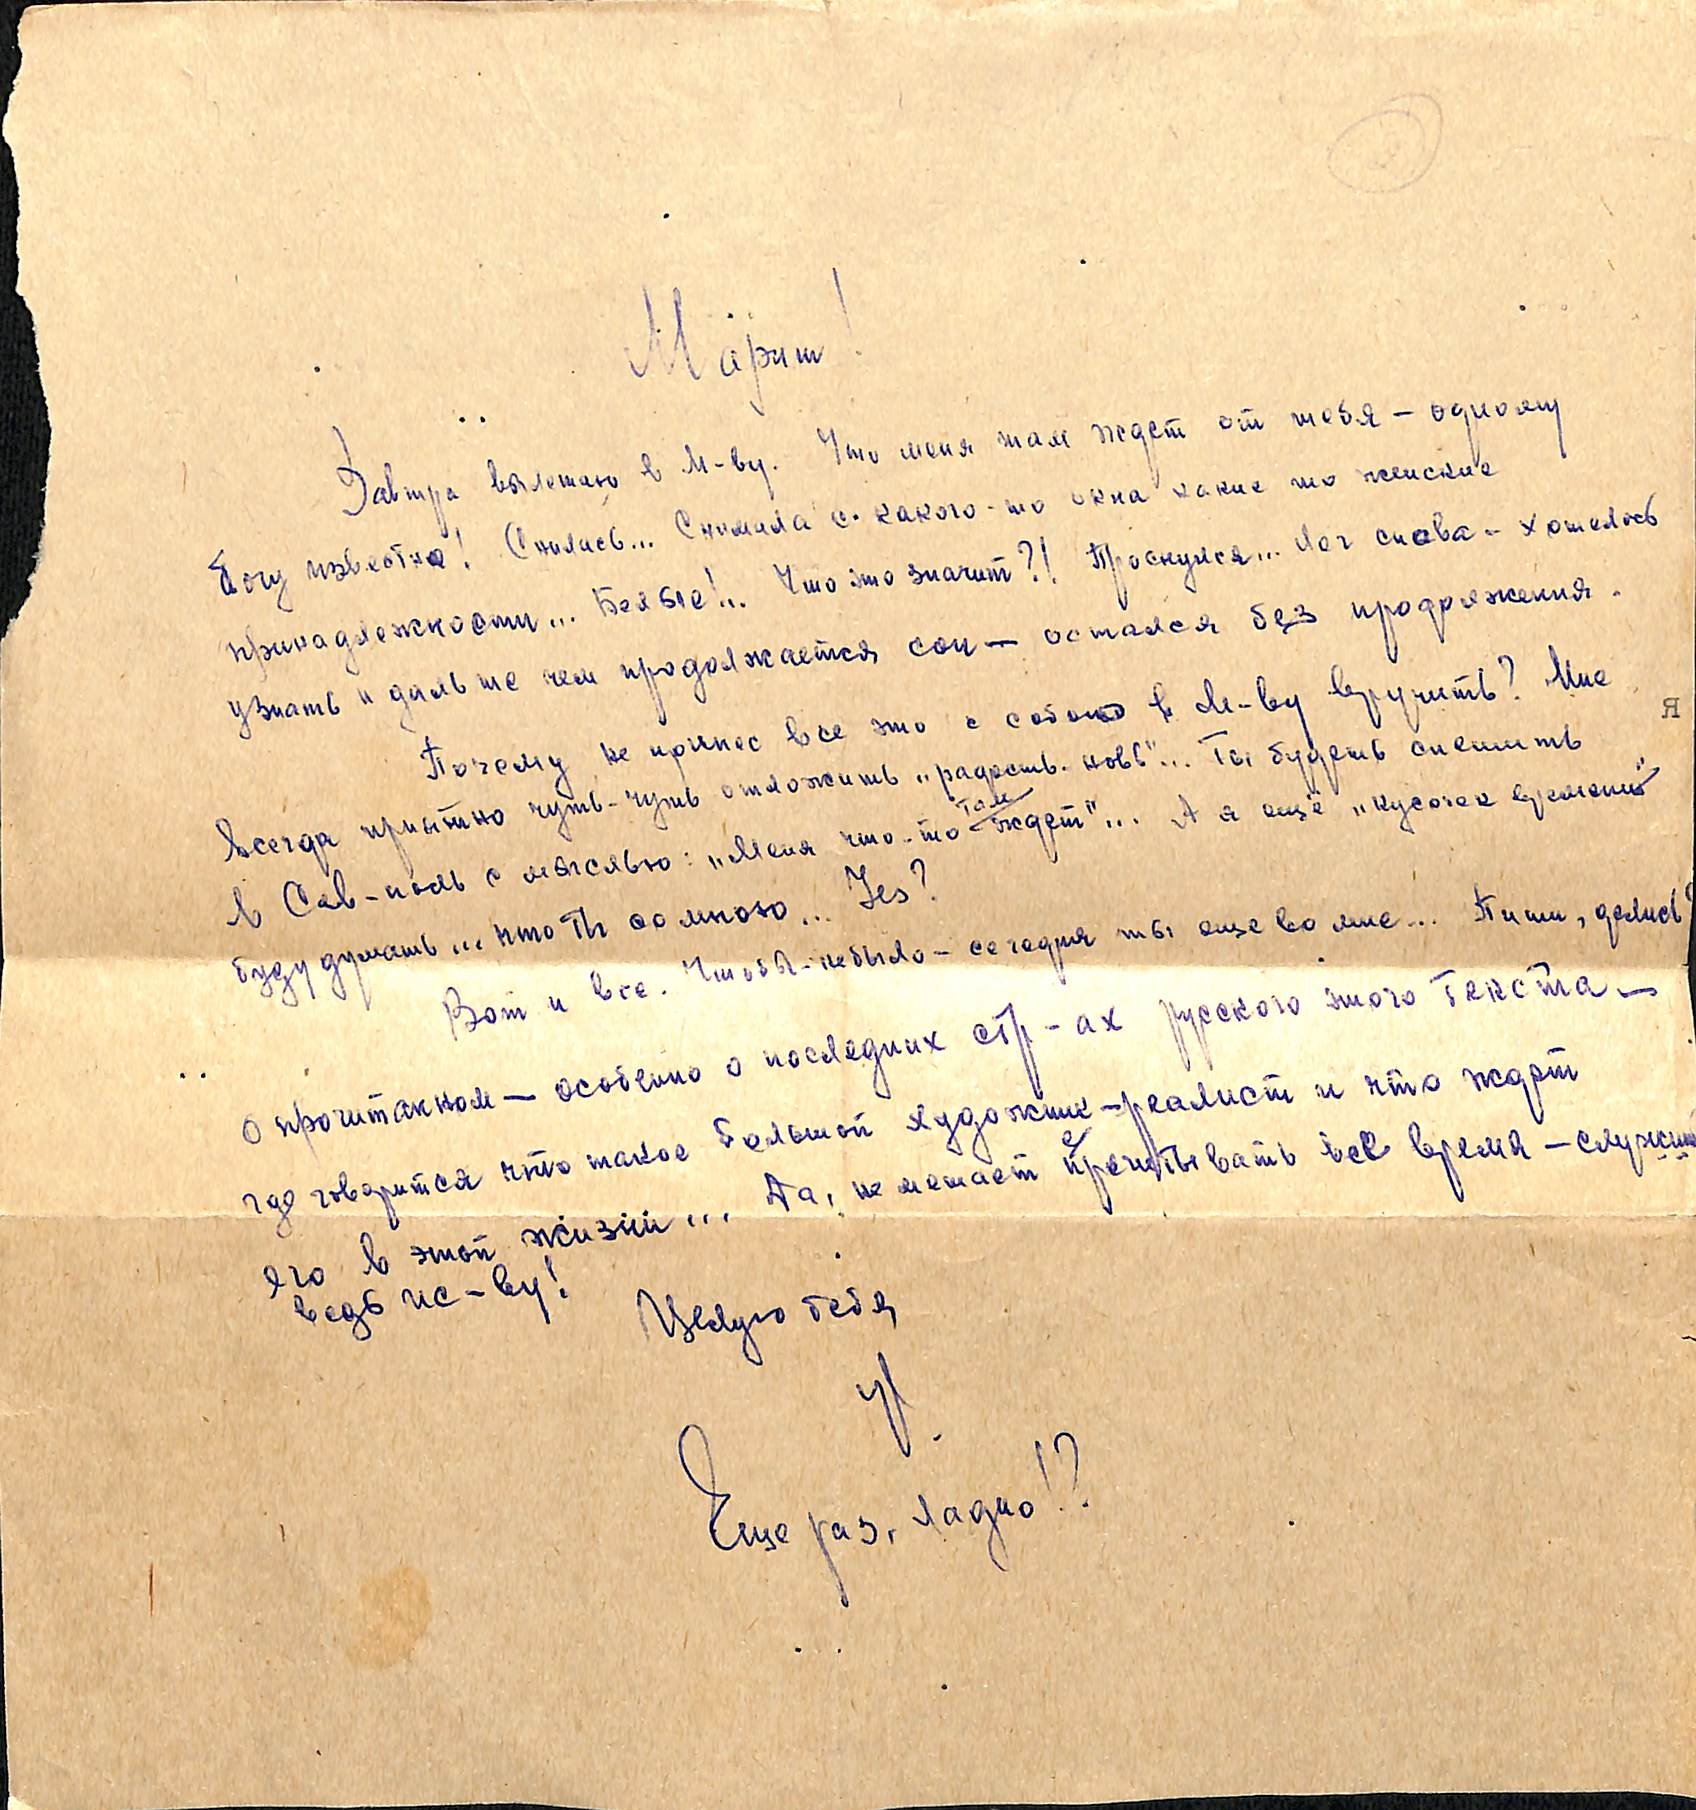 Мариш!
Завтра вылетаю в М-ву. Что меня там ждет от тебя – одному
богу известно! Снилась... Снимала с какого-то окна какие то женские
принадлежности... Белые!.. Что это значит?! Проснулся... Лег снова – хотелось
узнать и дальше чем продолжается сон – остался без продолжения.
Почему не принес все это с собою в М-ву вручить? Мне
всегда приятно чуть-чуть отложить „радость-новь"... Ты будешь спешить
в Сев-поль с мыслью: „Меня что-то там ждет"... А я еще „кусочек времени"
буду думать... что ты со мною... Yes?
Вот и все. Что бы-небыло – сегодня ты еще во мне... Пиши, делись
о прочитанном – особенно о последних стр-ах русского этого текста –
где говорится что такое большой художник-реалист и что ждет
его в этой жизни... Да, не мешает перечитывать все время – служить
ведь ис-ву!
Целую тебя
Еще раз, ладно!?
Я